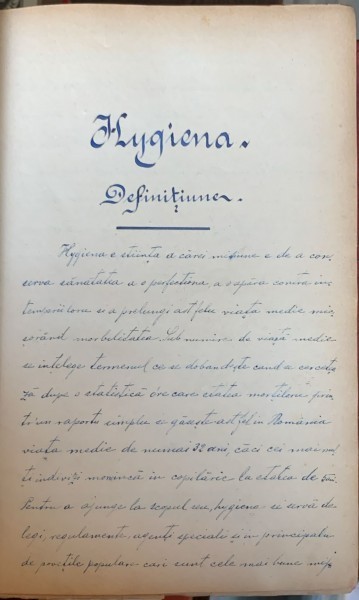 Hygiena.
Definițiune.
Hygiena e știința a cărei misiune e de a con
serva sănătatea a o perfectiona, a o apăra contra in
temperiilor e a prelungi astfeliu viața medie mic
șorând morbilitatea. Sub numire de viață medie
se ințelege termenul ce se dobândește cand a
ză dupe o statistică óre care etatea mortilor prin
tr'un raportu simplu se găsește astfel in România
viața medie de numai 32 ani, căci cei mai mul
ți indiviți moréu in copilărie la etatea de
Pentru a ajunge la scopul seu, hygiena se servă de
legi, regulamente, agenți speciale și in principalu
de practice populare cari sunt cele mai bune mij